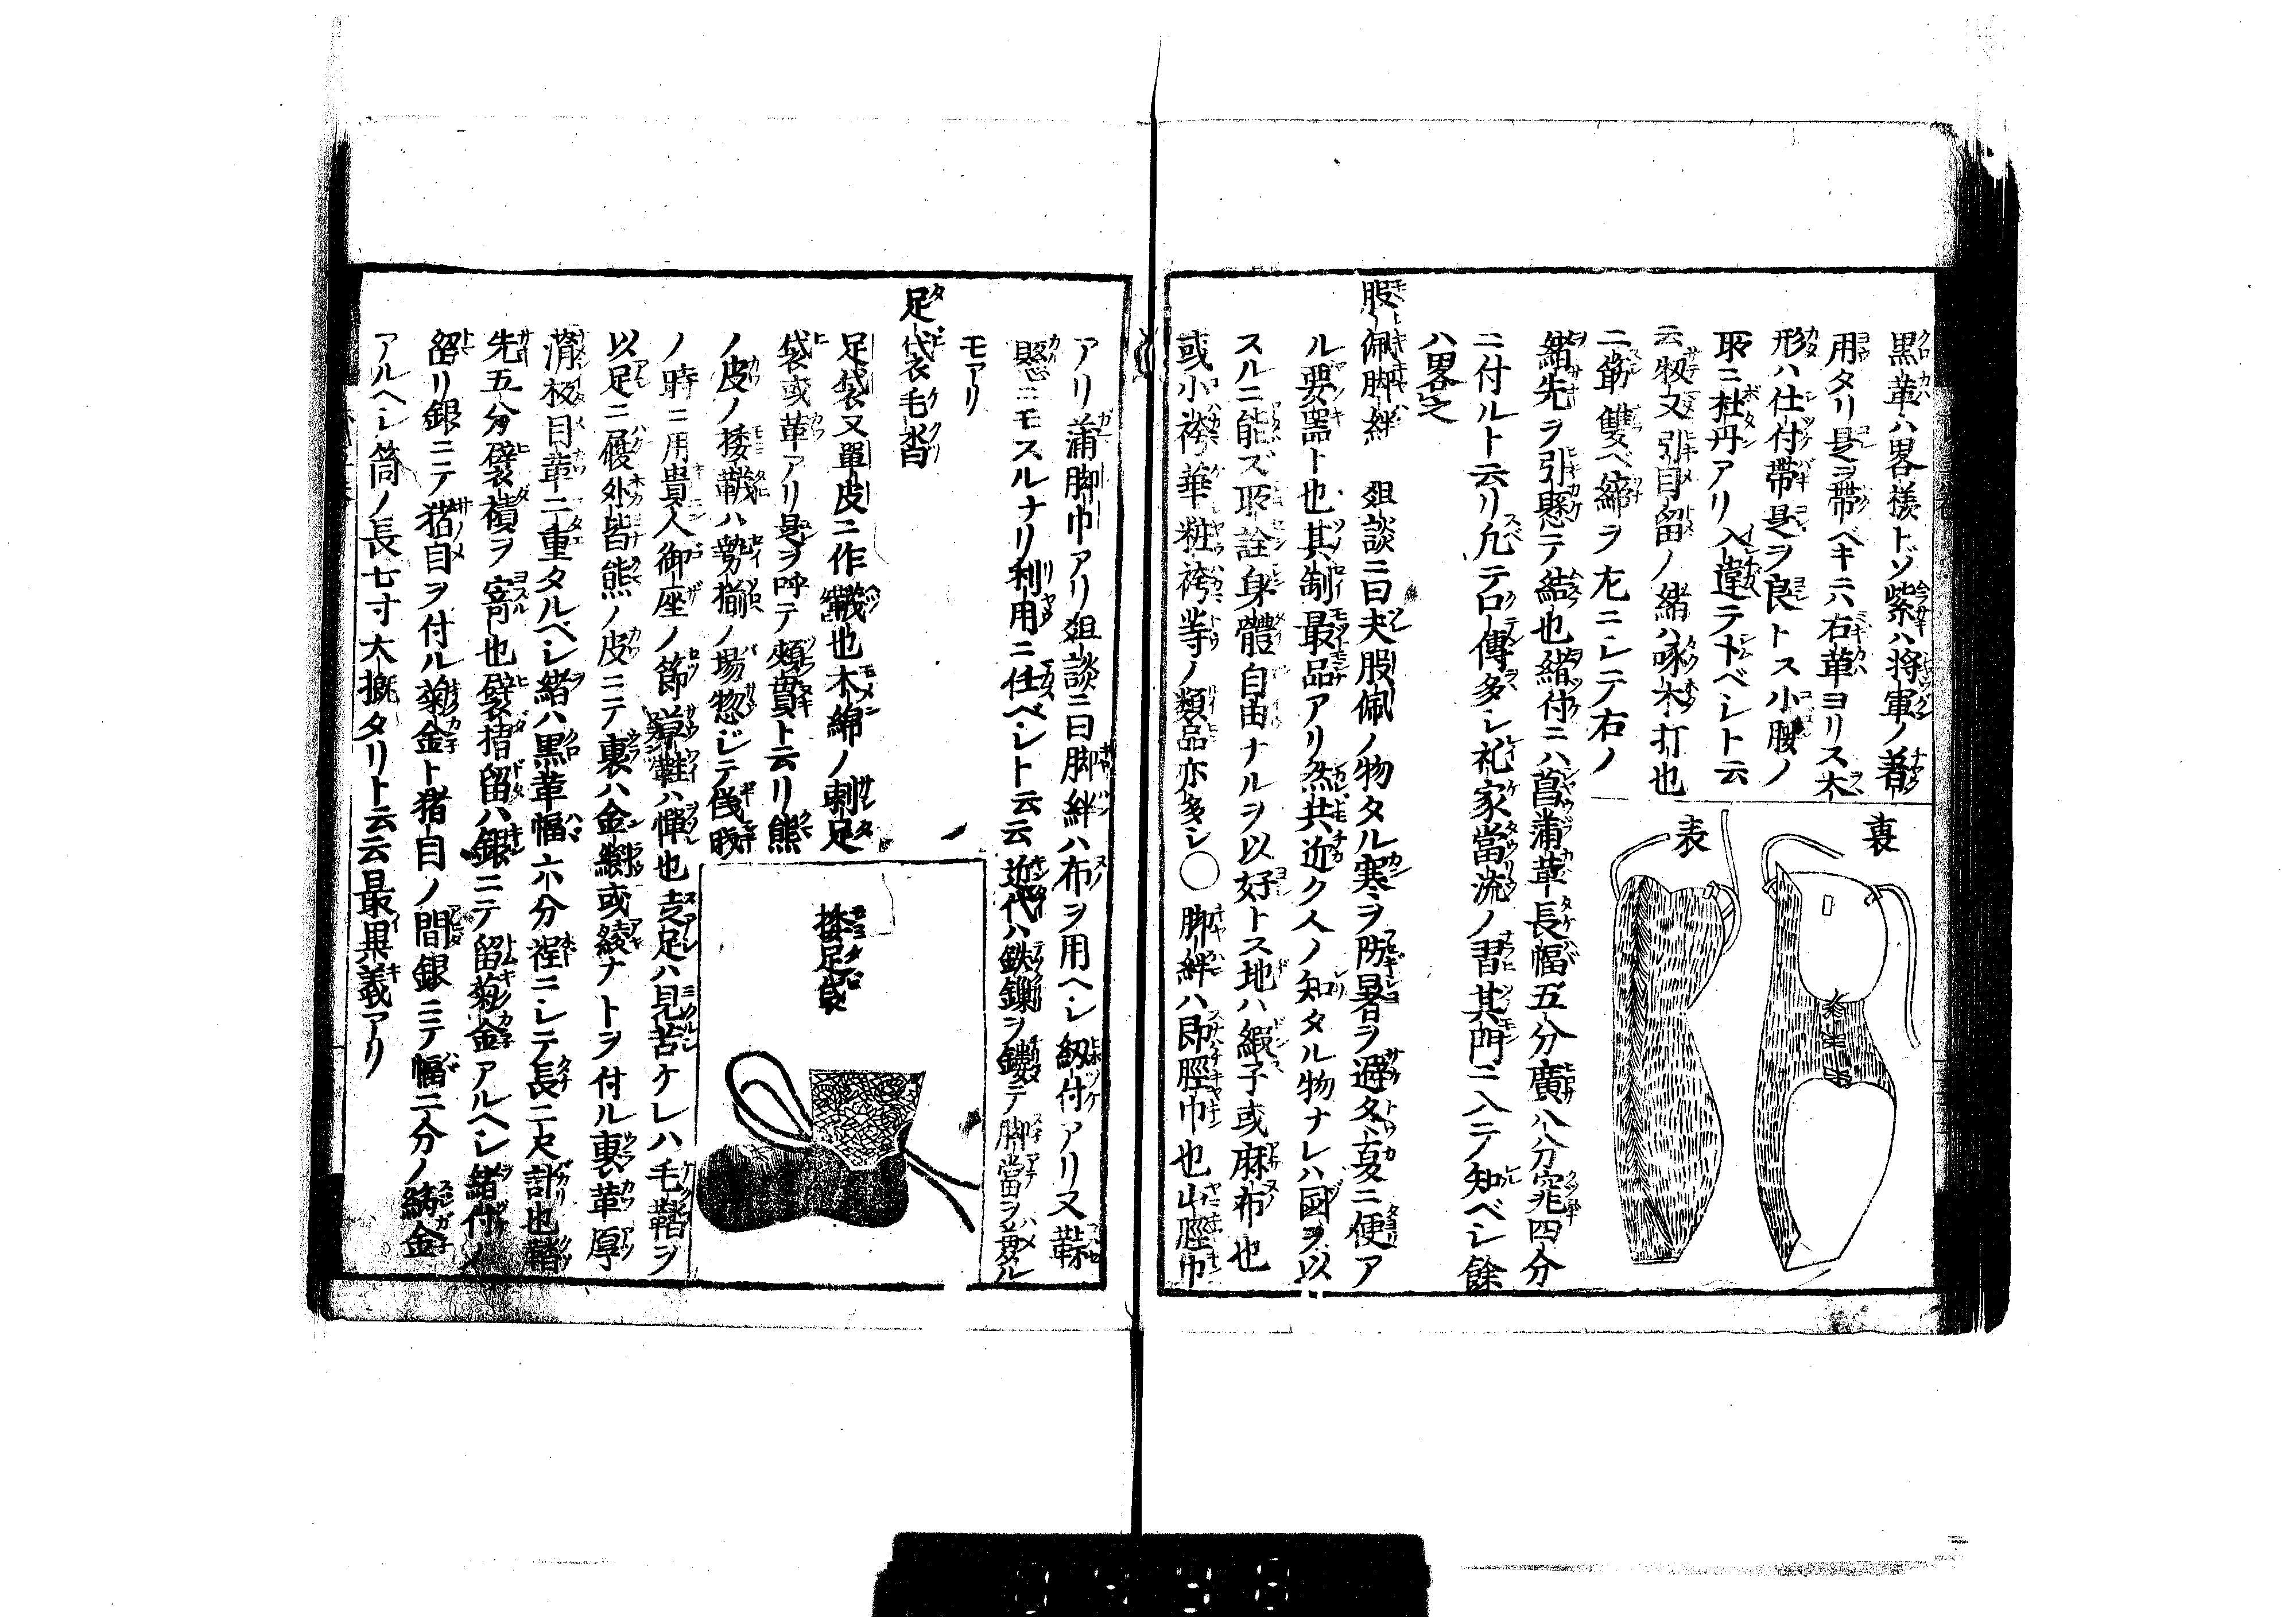 黒革ハ畧様トゾ紫ハ将軍ノ着
用タリ是ヲ帯ベキニハ右革ヨリス太
形ハ仕付帯是ヲ良トス小腰ノ
取ニ杜丹アリ入違テ下ベシト云
云扨又引目留ノ緒ハ啄木打也
二筋雙べ締ヲ尢ニシテ右ノ
緒先ヲ引懸テ結也緒付ニハ菖蒲革長幅五分廣八分窕四分
ニ付ルト云リ凢テ口傳多シ礼家當流ノ習其門ニ入テノ知ベシ餘
ハ畧之
裏
表
股佩脚絆 爼談ニ曰夫股佩ノ物タル寒ヲ防暑ヲ避タ夏ニ便ア
ル要噐ト也其制最品アリ然共近ク人ノ知タル物ナレハ圖ヲ以
スルニ能ズ取詮身體自由ナルヲ以好トス地ハ緞子或麻布也
或小袴華粧袴等ノ類品亦多シ〇脚絆ハ即脛巾也山脛巾
アリ蒲脚巾アリ爼談ニ曰脚絆ハ布ヲ用ヘシ紐付アリ又鞢
懸ニモスルナリ利用ニ任ベシト云云近代ハ鉄鏁ヲ鏤テ脚當ヲ兼ル
モアリ
足袋毛沓
足袋又單皮ニ作韈也木綿ノ刺足
袋或革アリ是ヲ呼テ頰貫ト云リ熊
ノ皮ノ捼韈ハ勢揃ノ場惣じテ俴股
ノ時ニ用貴人御座ノ節草鞋ハ憚也素足ハ見苦ケレハ毛鞜ヲ
以足ニ履外皆熊ノ皮ニテ裏ハ金襴或綾ナトヲ付ル裏革厚
滑板目革二重タルベシ緒ハ黒革幅六分裎ニシテ長二尺計也鞜
先五分襞襀ヲ寄也襞揩留ハ銀ニテ留菊金アルヘシ緒付ノ
留リ銀ニテ猪目ヲ付ル菊金ト猪目ノ間銀ニテ幅二分ノ筋金
アルヘシ筒ノ長七寸大概タリト云云最異義アリ
捼足袋